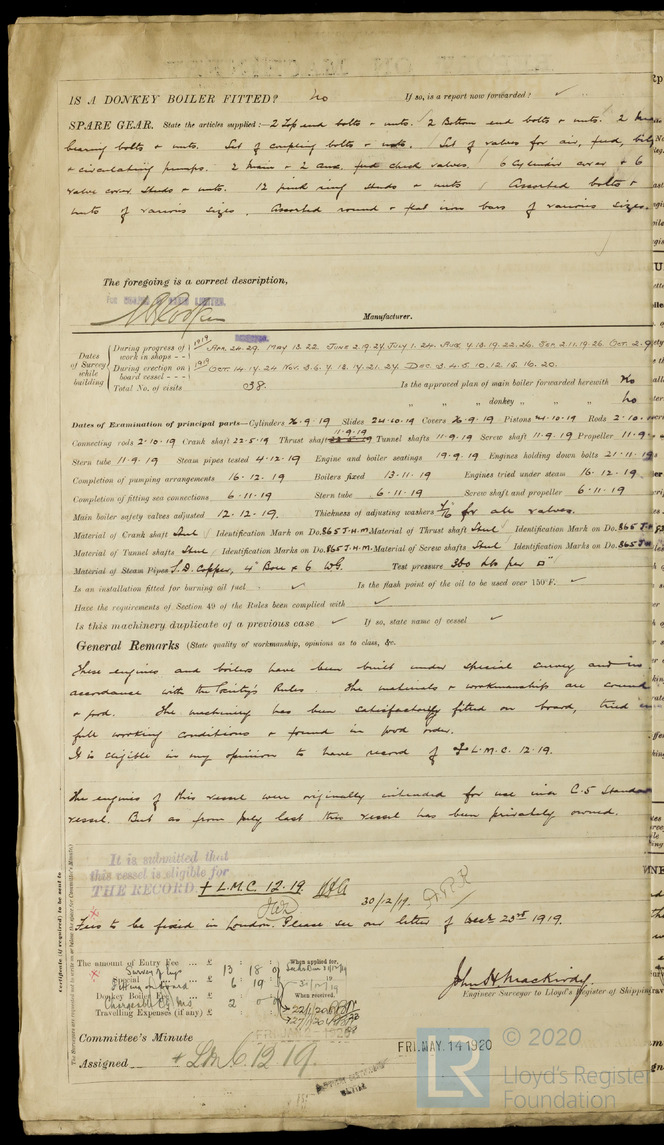 IS A DONKEY BOILER FITTED? No If so, is a report now forwarded? ✓
SPARE GEAR. State the articles supplied:— 2 Top end bolts + nuts. 2 Bottom end bolts + nuts. 2 Main
bearing bolts + nuts. Set of coupling bolts + nuts. Set of valves for air, feed, bilge
+ circulating pumps. 2 main + 2 aux. feed check valves. 6 Cylinder cover + 6
valve cover studs + nuts. 12 junk ring studs + nuts. Assorted bolts +
nuts of various sizes. Assorted round + flat iron bars of various sizes.
The foregoing is a correct description,
Manufacturer.
Dates of Survey while building
During progress of work in shops - - 1919 Apr. 24. 29. May 13. 22. June 2. 9. 24. July 1. 24. Aug. 4. 13. 19. 22. 26. Sep. 2. 11. 19. 26. Oct. 2. 9
During erection on board vessel - - - 1919 Oct. 14. 17. 24. Nov. 3. 6. 7. 13. 17. 21. 27. Dec. 3. 4. 5. 10. 12. 15. 16. 20.
Total No. of visits 38. Is the approved plan of main boiler forwarded herewith No
" " " donkey " " " No
Dates of Examination of principal parts—Cylinders 26.9.19 Slides 24.10.19 Covers 26.9.19 Pistons 24.10.19 Rods 2.10.
Connecting rods 2.10.19 Crank shaft 22.5.19 Thrust shaft 11.9.19 Tunnel shafts 11.9.19 Screw shaft 11.9.19 Propeller 11.9.
Stern tube 11.9.19 Steam pipes tested 4.12.19 Engine and boiler seatings 19.9.19 Engines holding down bolts 21.11.19
Completion of pumping arrangements 16.12.19 Boilers fixed 13.11.19 Engines tried under steam 16.12.19
Completion of fitting sea connections 6.11.19 Stern tube 6.11.19 Screw shaft and propeller 6.11.19
Main boiler safety valves adjusted 12.12.19. Thickness of adjusting washers for all valves.
Material of Crank shaft Steel Identification Mark on Do. 865 J.H.M. Material of Thrust shaft Steel Identification Mark on Do. 865 J.H
Material of Tunnel shafts Steel Identification Marks on Do. 865 J.H.M. Material of Screw shafts Steel Identification Marks on Do. 865 J.H
Material of Steam Pipes S.D. Copper, 4" Bore + 6 WG. Test pressure 360 lbs per □"
Is an installation fitted for burning oil fuel ✓ Is the flash point of the oil to be used over 150°F. ✓
Have the requirements of Section 49 of the Rules been complied with ✓
Is this machinery duplicate of a previous case ✓ If so, state name of vessel ✓
General Remarks (State quality of workmanship, opinions as to class, &c.
These engines and boilers have been built under special survey and in
accordance with the Society's Rules. The materials + workmanship are sound
+ good. The machinery has been satisfactorily fitted on board, tried
full working conditions + found in good order.
It is eligible in my opinion to have record of + L.M.C. 12.19.
The engines of this vessel were originally intended for use in a C.5 Standard
vessel. But as from July last this vessel has been privately owned.
It is submitted that
this vessel is eligible for
THE RECORD + L.M.C. 12.19.
30/12/19.
Fees to be fixed in London. Please see our letter of Decr 23rd 1919.
Certificate (if required) to be sent to
The amount of Entry Fee ... £ : : When applied for,
Survey of Engs 13 : 18 : 0
Special ... £ 6 : 19 :
Fitting on board
Donkey Boiler Fee ... £ 2 : 0 When received,
Travelling Expenses (if any) £ : :
John H. Mackirdy
Engineer Surveyor to Lloyd's Register of Shipping
Committee's Minute FRI. MAY. 14 1920
Assigned + LMC. 12.19.
LR
© 2020
Lloyd's Register
Foundation